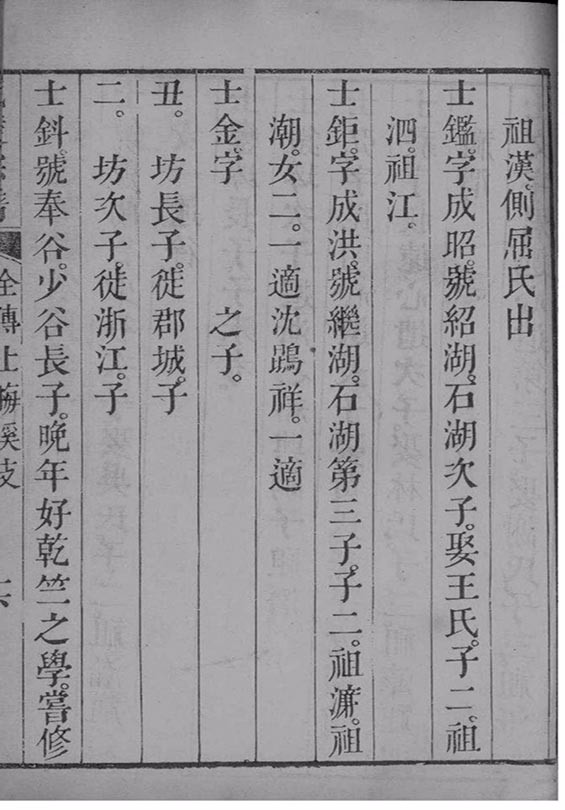 祖漢。側屈氏出
士鑑。字成昭。號紹湖。石湖次子。娶王氏。子二。祖
泗。祖江。
士鉅。字成洪。號繼湖。石湖第三子。子二。祖濂。祖
潮。女二。一適沈鵾祥。一適
士金。字　　之子。
丑。坊長子。徙郡城。子
二。坊次子。徙浙江。子
士㪷號奉谷。少谷長子。晚年好乾竺之學。嘗修
全傳上梅溪支